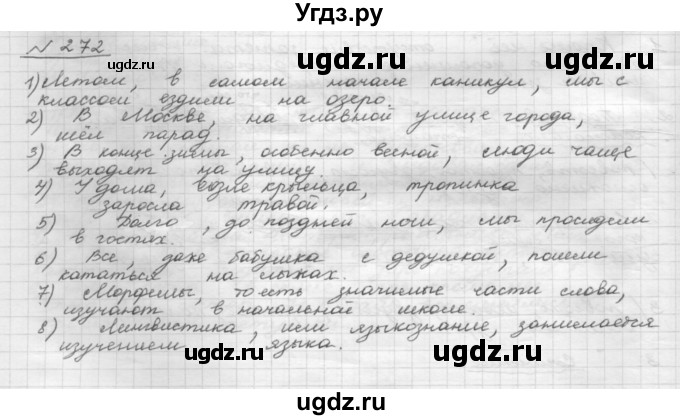 Угдз.ру
N 272
1) Летом, в самом начале каникул, мы с
классом ездили на озеро.
2) В Москве, на главной улице города,
шёл парад.
3) В конце зимы, особенно весной, люди чаще
выходят на улицу.
4) У дома, возле крыльца, тропинка
заросла травой.
5) Долго, до поздней ночи, мы просидели
в гостях.
6) Все, даже бабушка с дедушкой, пошли
кататься на лыжах.
7) Морфемы, то есть значимые части слова,
изучают в начальной школе.
8) Лингвистика, или языкознание, занимается
изучением языка.
ugdz.ru ugdz.ru
ugdz.ru ugdz.ru
ugdz.ru ugdz.ru
ugdz.ru ugdz.ru
ugdz.ru ugdz.ru
ugdz.ru ugdz.ru